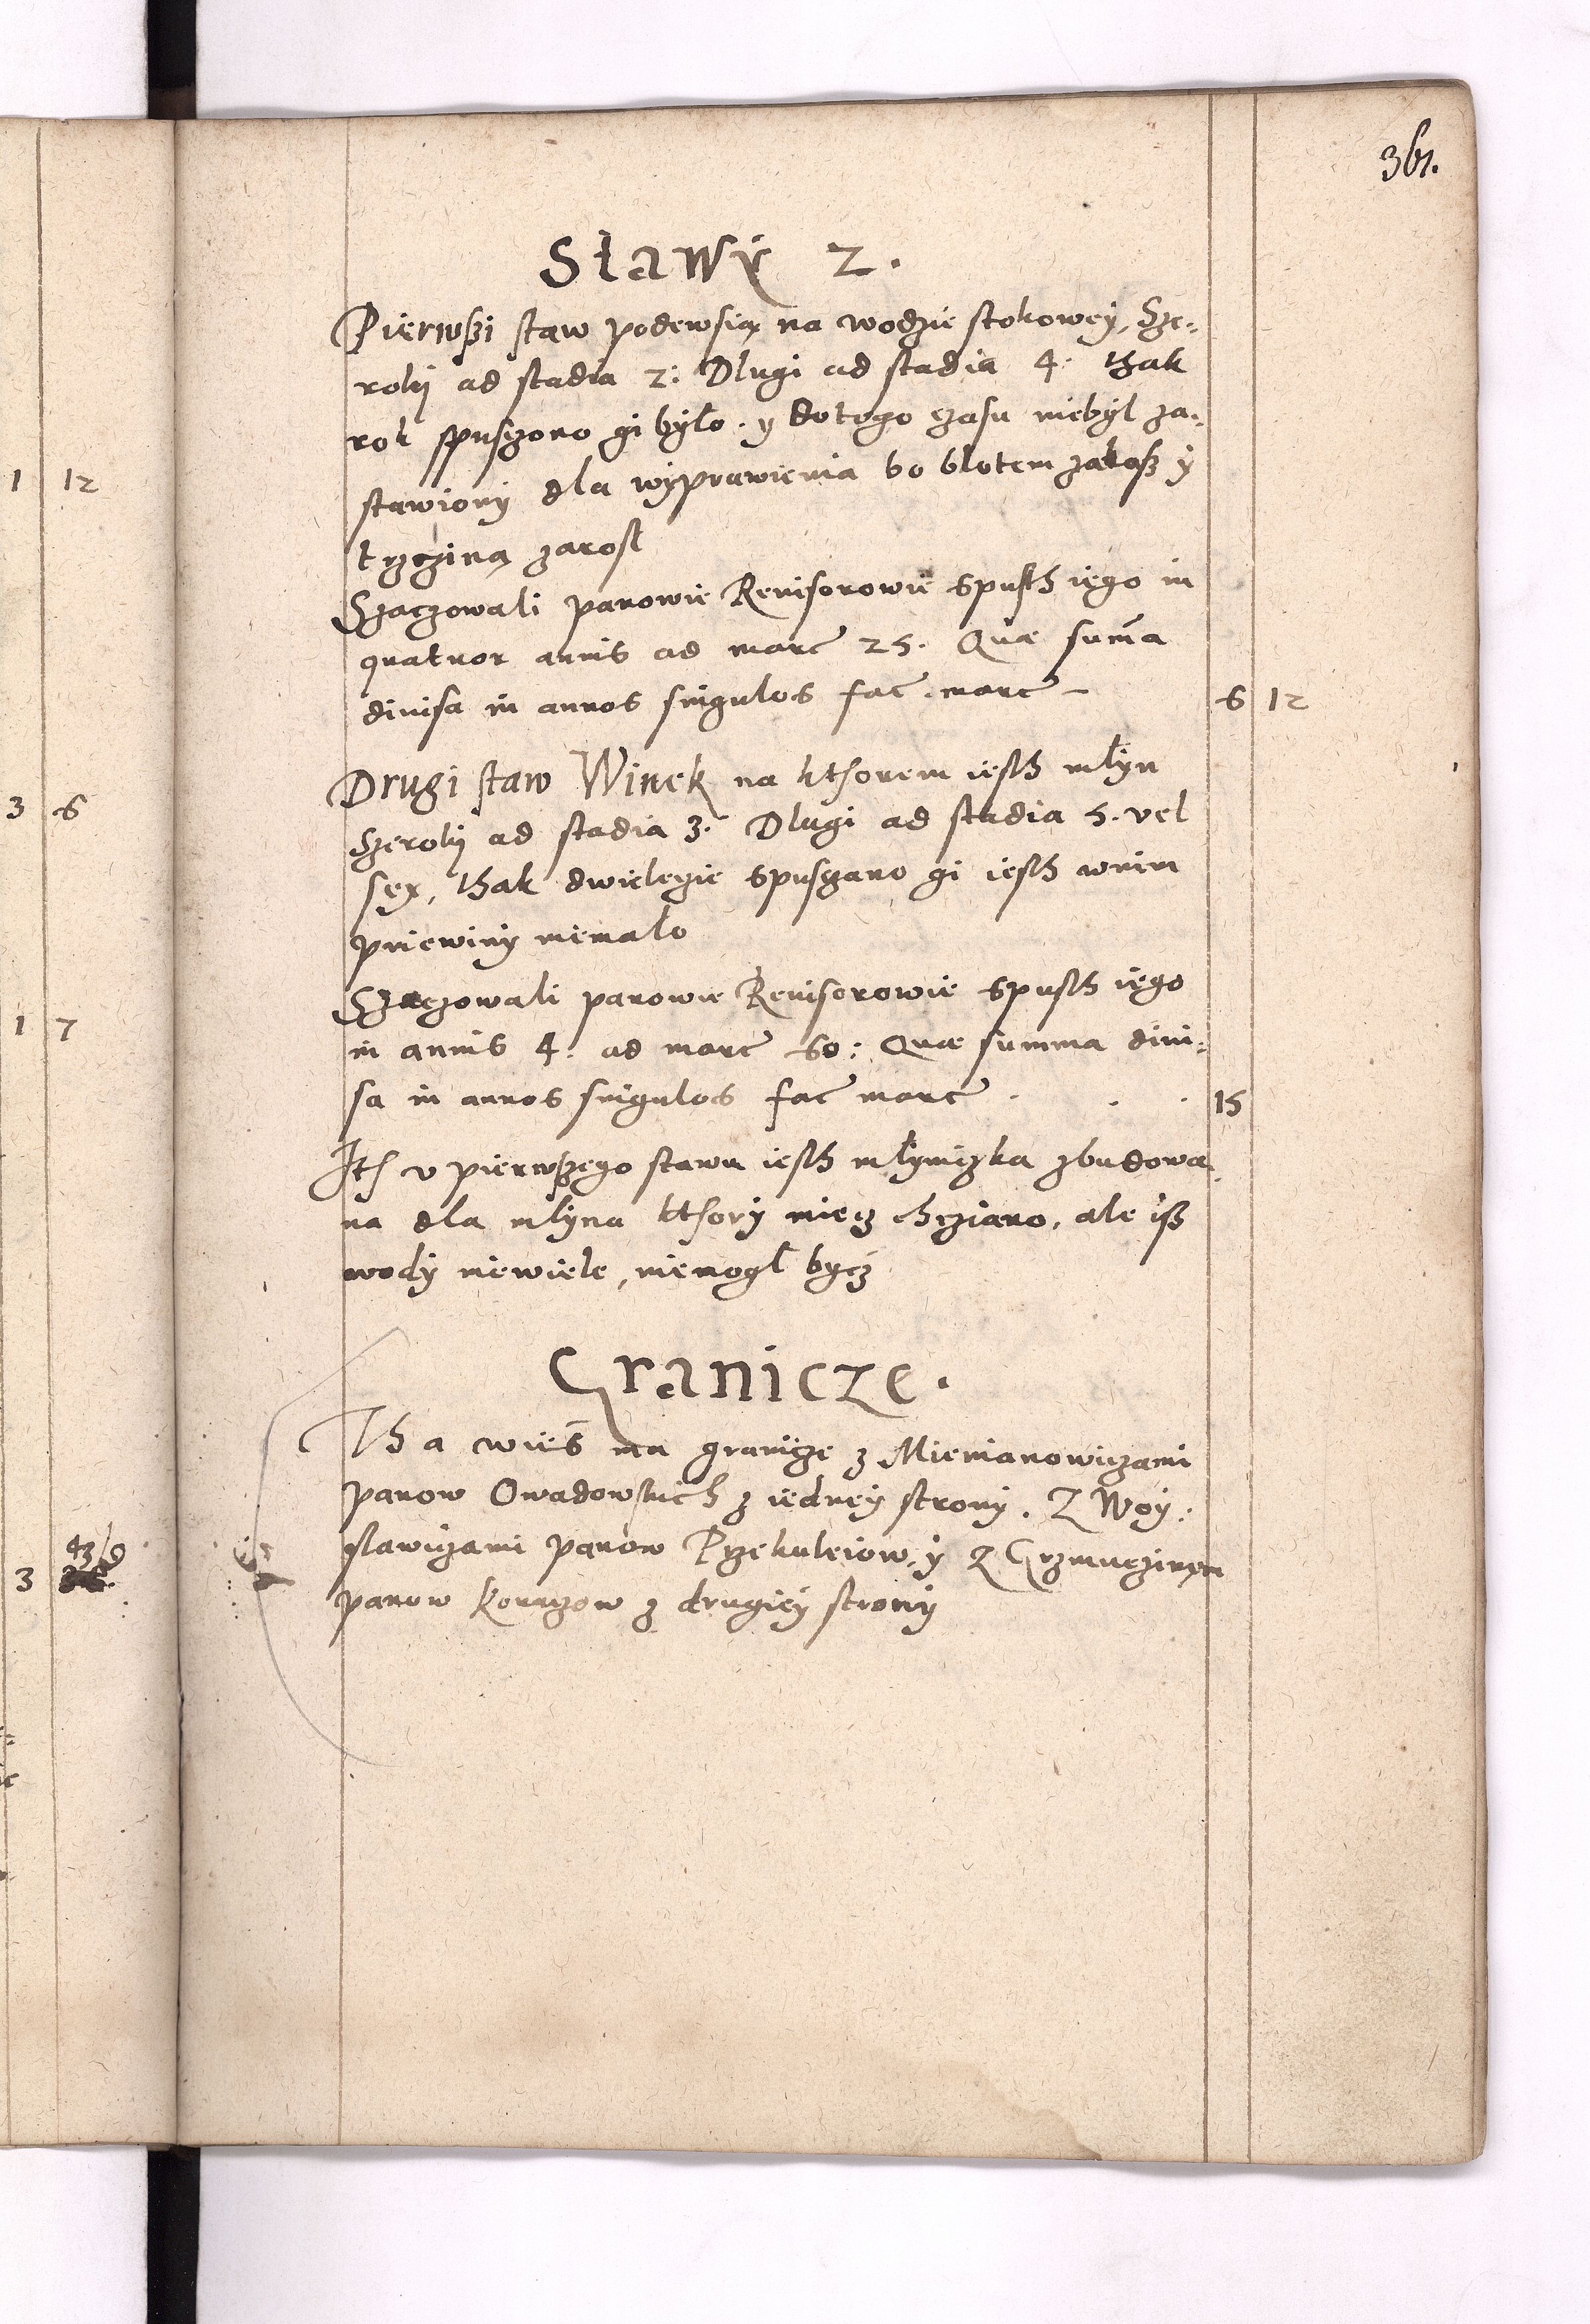 361.
Stawy 2.
Pierwszi staw podewsią na wodzie stokowey, Sze-
roky ad stadia 2: Dlugi ad stadia 4. thak
rok spusczono gi bylo. y dotego czasu niebyl za-
stawiony dla wyprawienia bo blotem zalasz y
trzczina zarosl
Szaczowali panowie Reuisorowie spusth iego in
quatuor annis ad marc 25. Quae suma
diuisa in annos singulos fac marc – 6 12
Drugi staw Winek na kthorem iesth mlyn
Szeroky ad stadia 3. Dlugi ad stadia 5. vel
sex, thak dwielezie spusczano gi iesth wnim
pniewiny niemalo
Szaczowali panowie Reuisorowie spusth iego
in annis 4. ad marc 60: Quae summa diui-
sa in annos singulos fac marc . . . 15
Ith v pierwszego stawu iesth mlyniczka zbudowa-
na dla mlyna kthory miecz chcziano, ale isz
wody niewiele, niemogl bycz
Granicze.
Tha wies ma granicze z Mienianowiczami
panow Owadowskich z iedney strony. Z Woy-
slawiczami panow Przekuleiow, y Z Grzmuczinem
panow koryczow z drugiey strony
1 12
3 6
1 7
3